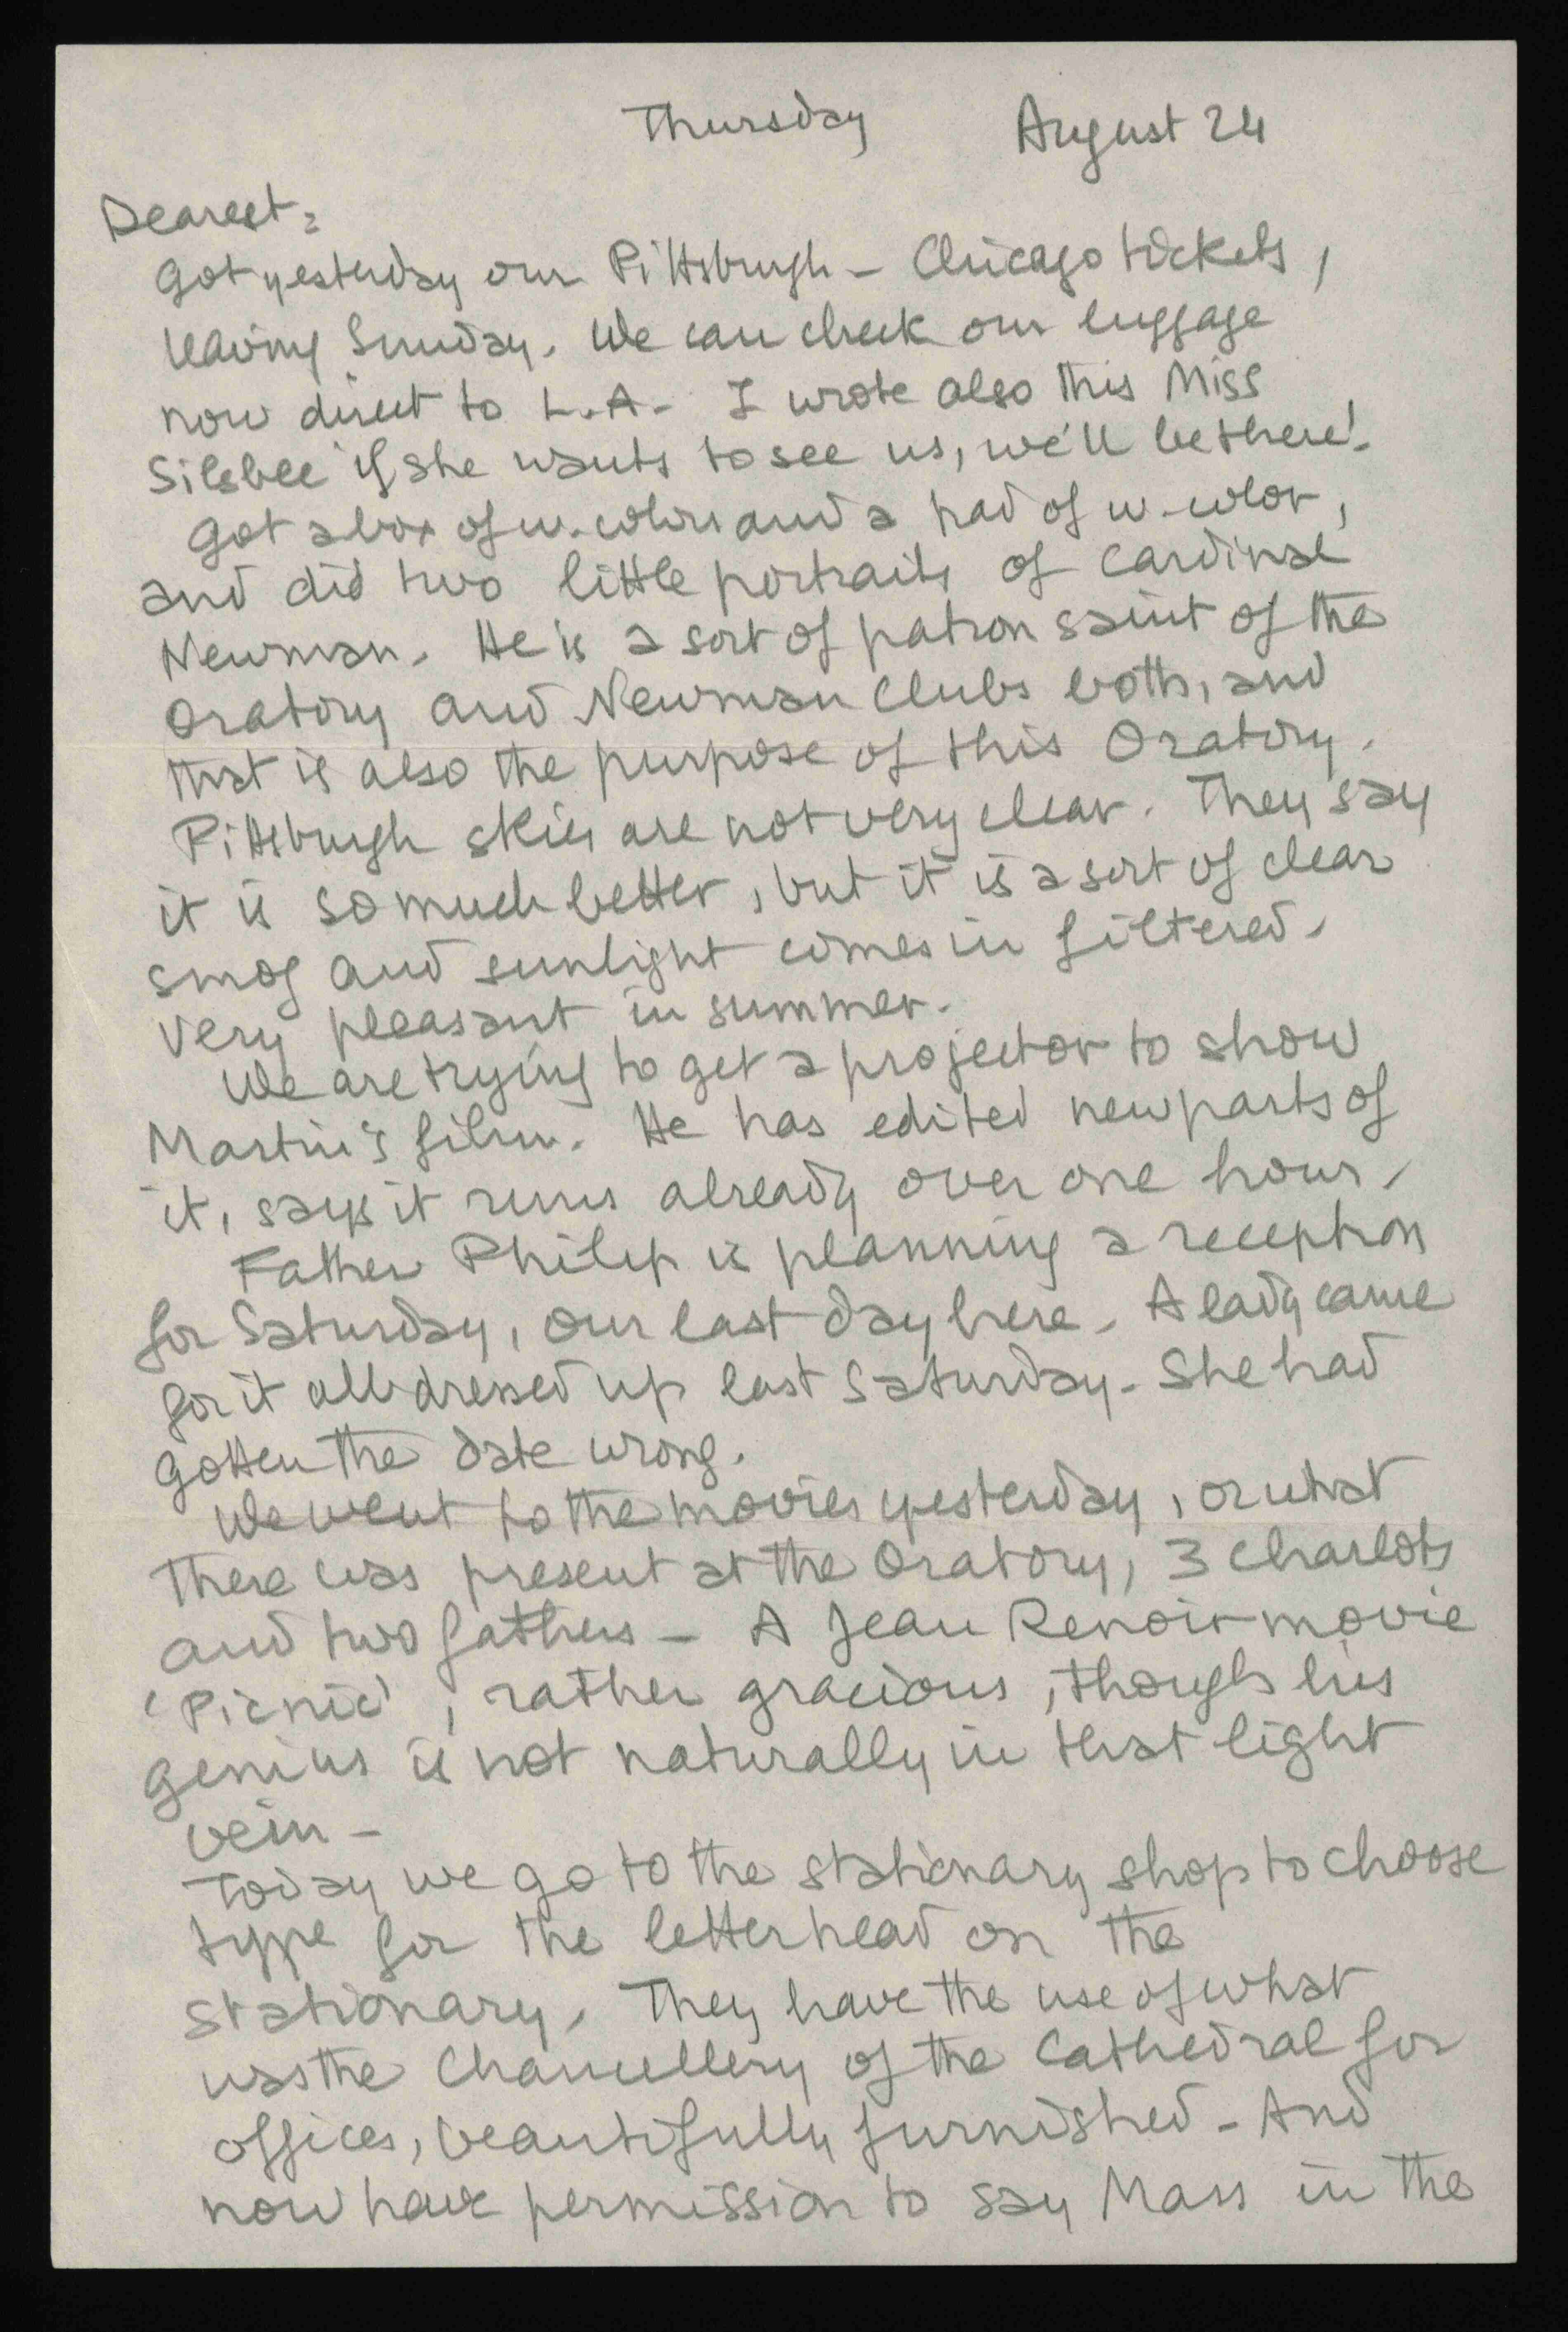 Thursday August 24
Dearest:
Got yesterday our Pittsburgh - Chicago tickets,
leaving Sunday. We can check our luggage
now direct to L.A. I wrote also this Miss
Silsbee 'if she wants to see us, we'll be there'.
Got a box of w. colors and a pad of w-color,
and did two little portraits of Cardinal
Newman. He is a sort of patron saint of the
Oratory and Newman Clubs both, and
that is also the purpose of this Oratory.
Pittsburgh skies are not very clear. They say
it is so much better, but it is a sort of clear
smog and sunlight comes in filtered.
Very pleasant in summer.
We are trying to get a projector to show
Martin's film. He has edited new parts of
it, says it runs already over one hour.
Father Philip is planning a reception
for Saturday, our last day here. A lady came
for it all dressed up last Saturday. She had
gotten the date wrong.
We went to the movies yesterday, or what
there was present at the Oratory, 3 Charlots
and two fathers - A Jean Renoir movie
'Picnic', rather gracious, though his
genius is not naturally in that light
vein -
Today we go to the stationary shop to choose
type for the letterhead on the
stationary. They have the use of what
was the Chancellery of the Cathedral for
offices, beautifully furnished - And
now have permission to say Mass in the